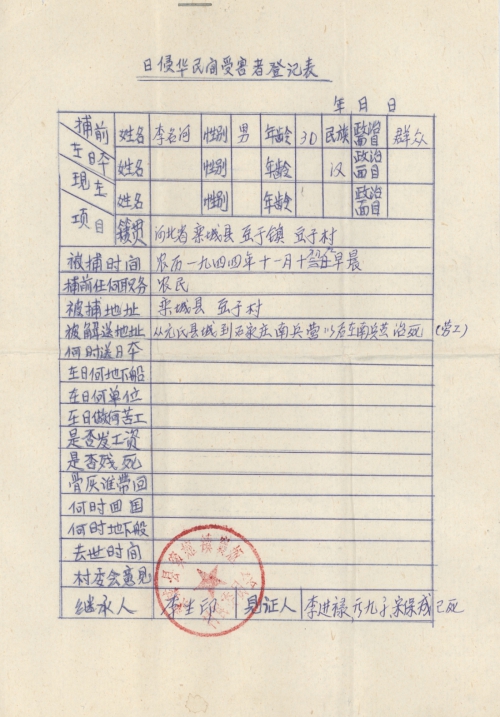 日侵华民间受害者登记表
年 日 日
捕前 姓名 李名河 性别 男 年龄 30 民族 政治面目 群众
在日本 姓名 性别 年龄 汉 政治面目
现在 姓名 性别 年龄 政治面目
项目 籍贯 河北省栾城县 豆于镇 豆于村
被捕时间 农历一九四四年十一月十 早晨
捕前任何职务 农民
被捕地址 栾城县 豆于村
被解送地址 从元氏县城到石家庄南兵营以后在南兵营 死 (劳工)
何时送日本
在日何地下船
在日何单位
在日做何苦工
是否发工资
是否残死
骨灰谁带回
何时回国
何时地下般
去世时间
村委会意见
继承人 李生印 见证人 李进禄 九子 宋保戎已死